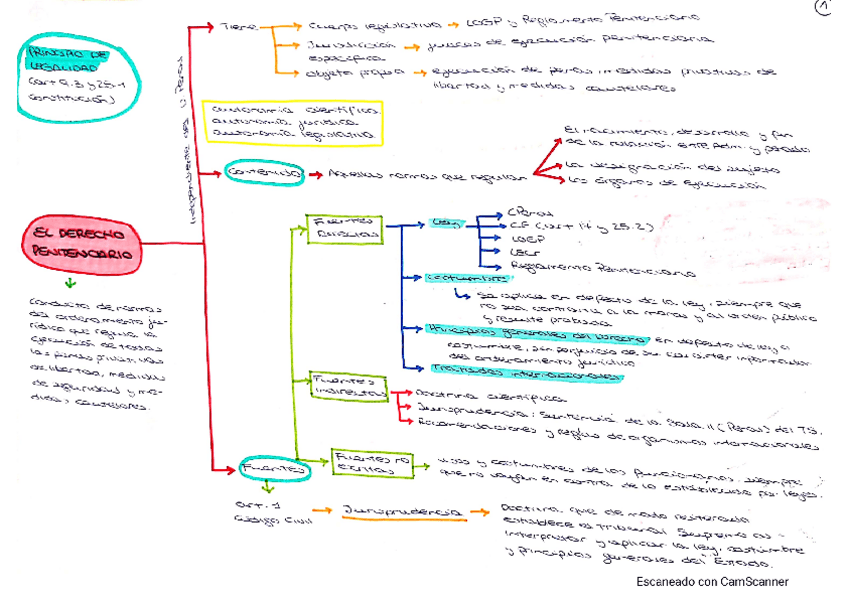 1
PRINCIPIO DE
LEGALIDAD
(art 9.3 y 25.1
constitución)
Independiente del C. Penal
Tiene
Cuerpo legislativo → LOGP y Reglamento Penitenciario
Jurisdicción → jueces de ejecución penitenciaria
específica
Objeto propio → ejecución de penas, medidas privativas de
libertad y medidas cautelares
autonomía científica
autonomía jurídica
autonomía legislativa
Contenido → Aquellas normas que regulan
El nacimiento, desarrollo y fin
de la relación entre Adm y penado
La designación del sujeto
Los órganos de ejecución
EL DERECHO
PENITENCIARIO
Conjunto de normas
del ordenamiento ju-
rídico que regula la
ejecución de todas
las penas privativas
de libertad, medidas
de seguridad y me-
didas cautelares.
FUENTES
FUENTES
Ley
CPenal
CE (art 14 y 25.2)
LOGP
LECr
Reglamento Penitenciario
Costumbre
Se aplica en defecto de la ley, siempre que
no sea contraria a la moral y al orden público
y resulte probada
Principios generales del Derecho en defecto de ley o
costumbre, sin perjuicio de su carácter informador
del ordenamiento jurídico
Tratados internacionales
FUENTES
INDIRECTAS
Doctrina científica
Jurisprudencia: Sentencia de la Sala II (Penal) del TS.
Recomendaciones y reglas de organismos internacionales
FUENTES NO
ESCRITAS
usos y costumbres de los funcionarios, siempre
que no vayan en contra de lo establecido por leyes.
art. 1
Código Civil
Jurisprudencia
Doctrina que de modo reiterado
establece el Tribunal Supremo al
interpretar y aplicar la ley, costumbre
y principios generales del Estado.
Escaneado con CamScanner